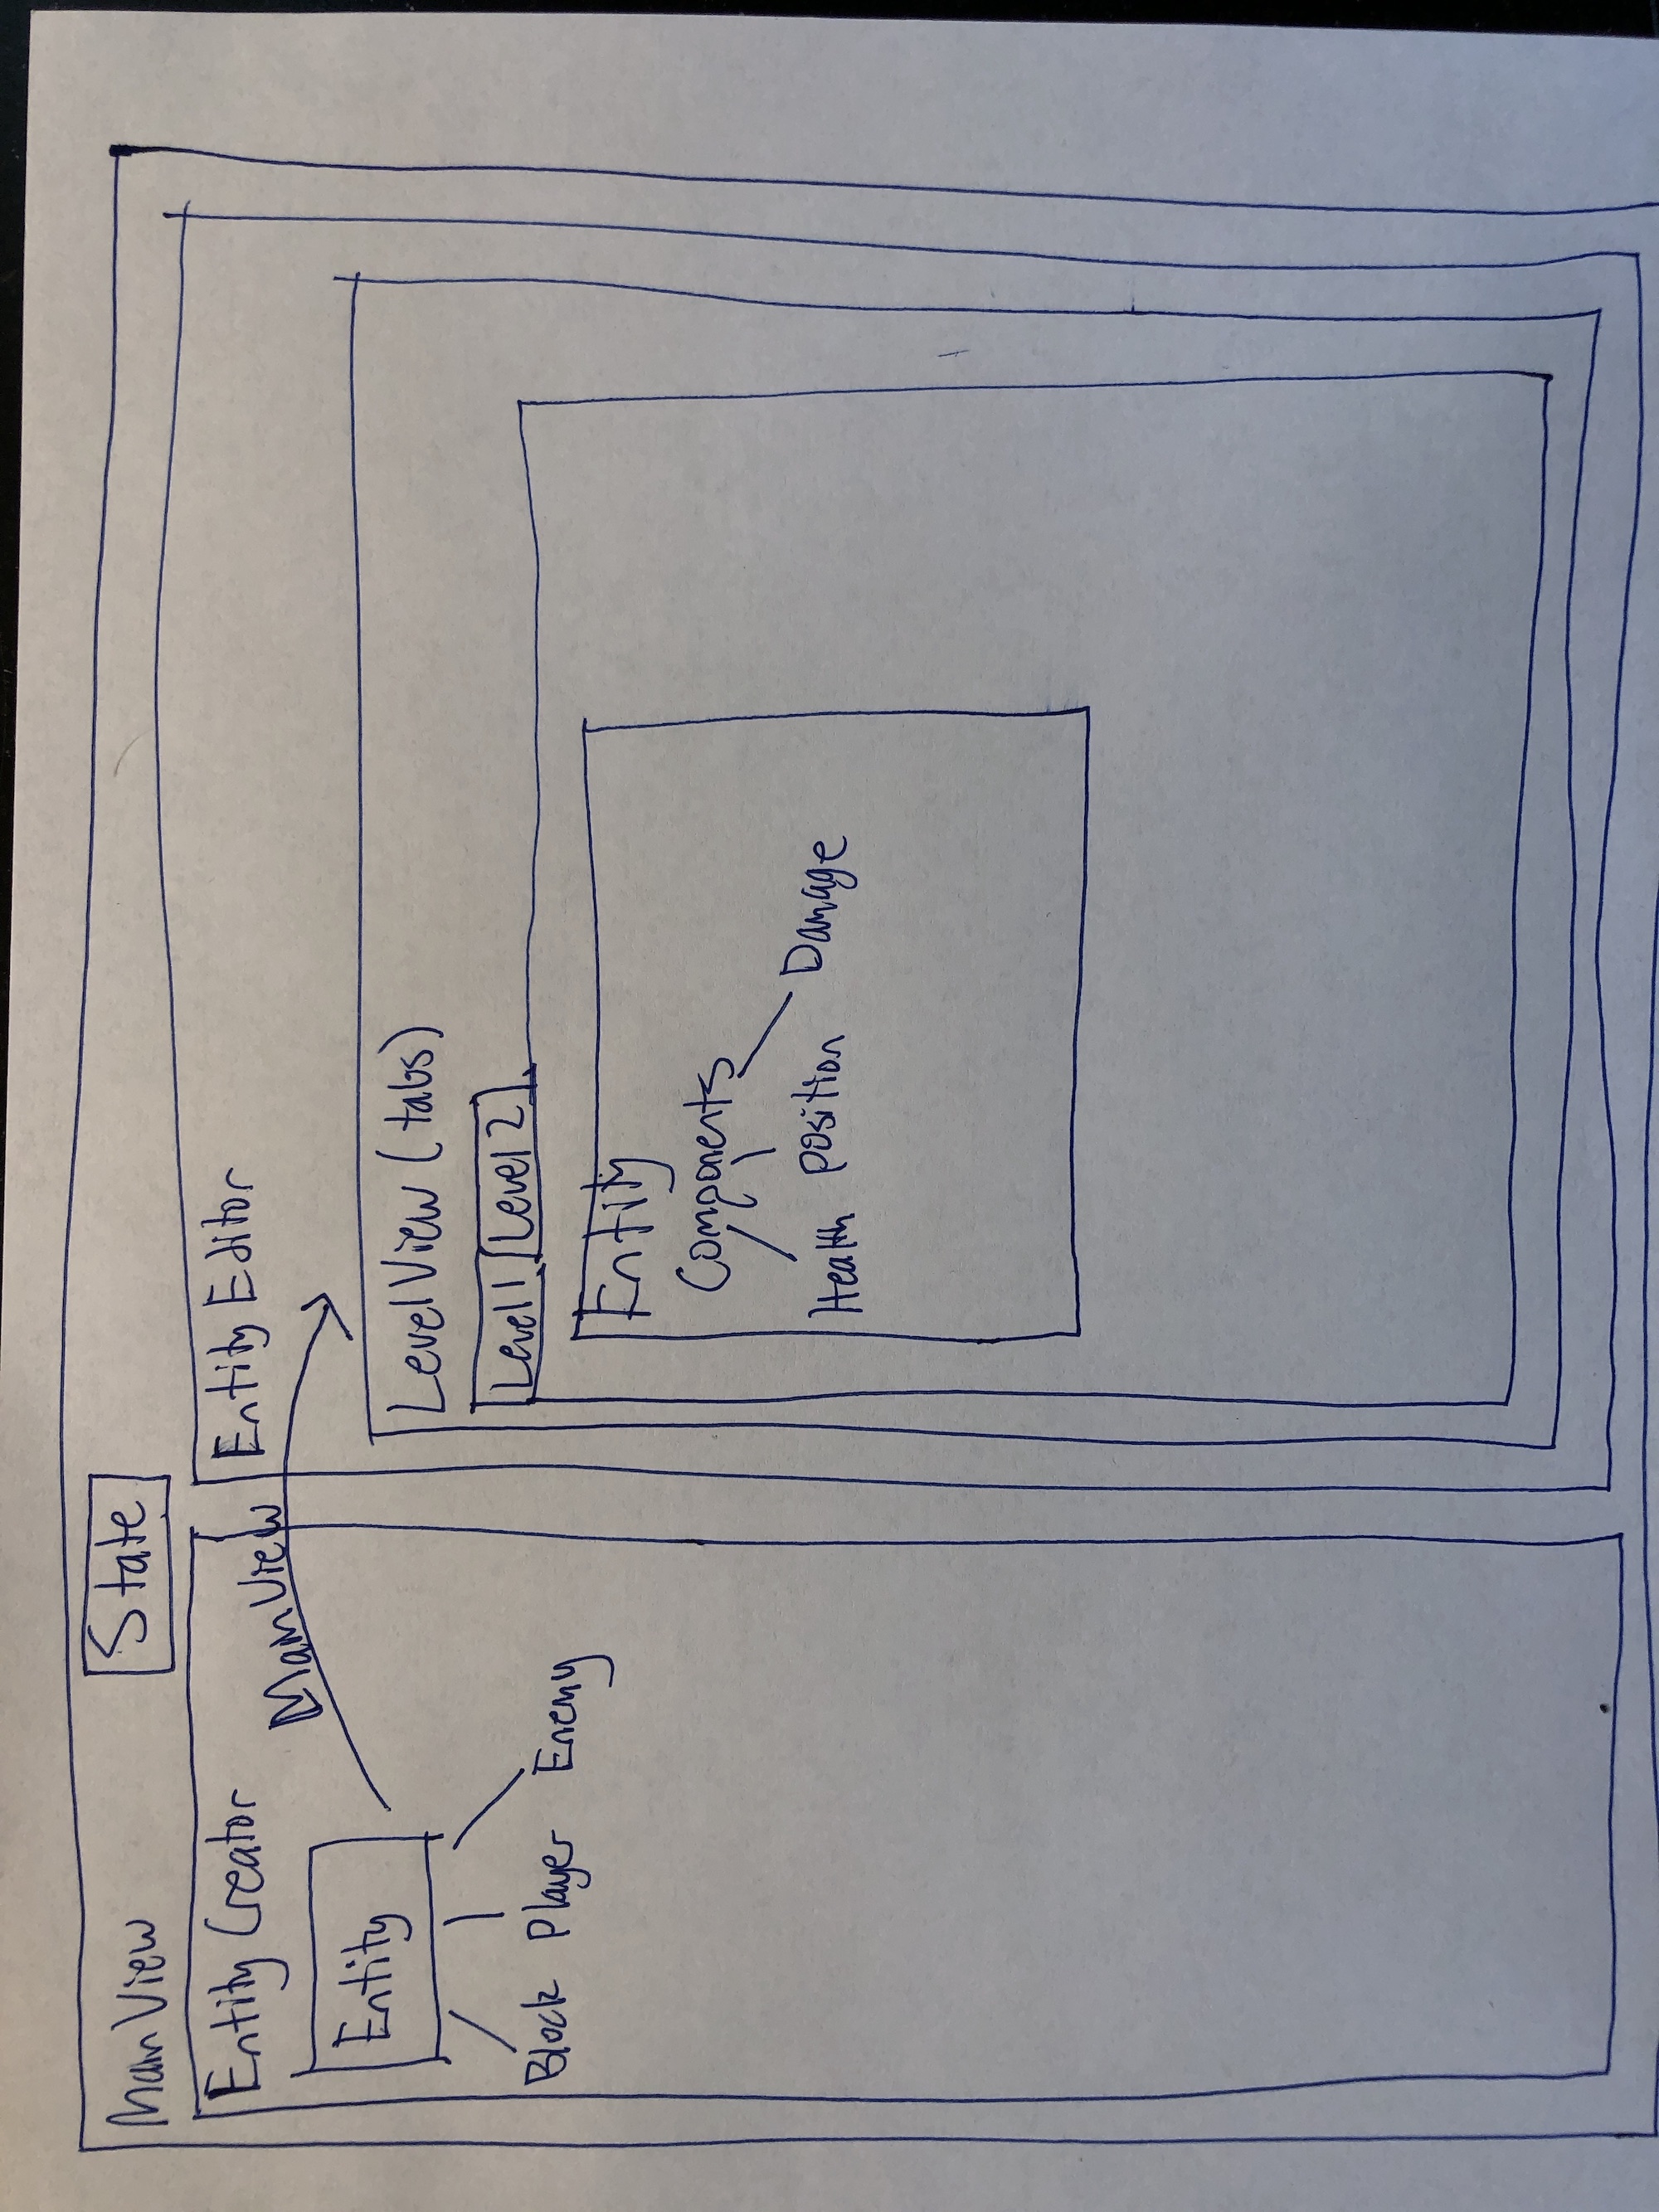 Main View
State
Entity Creator
Main View
Entity
Block Player Enemy
Entity Editor
Level View (tabs)
Level 1 Level 2
Entity
Components
Health Position Damage